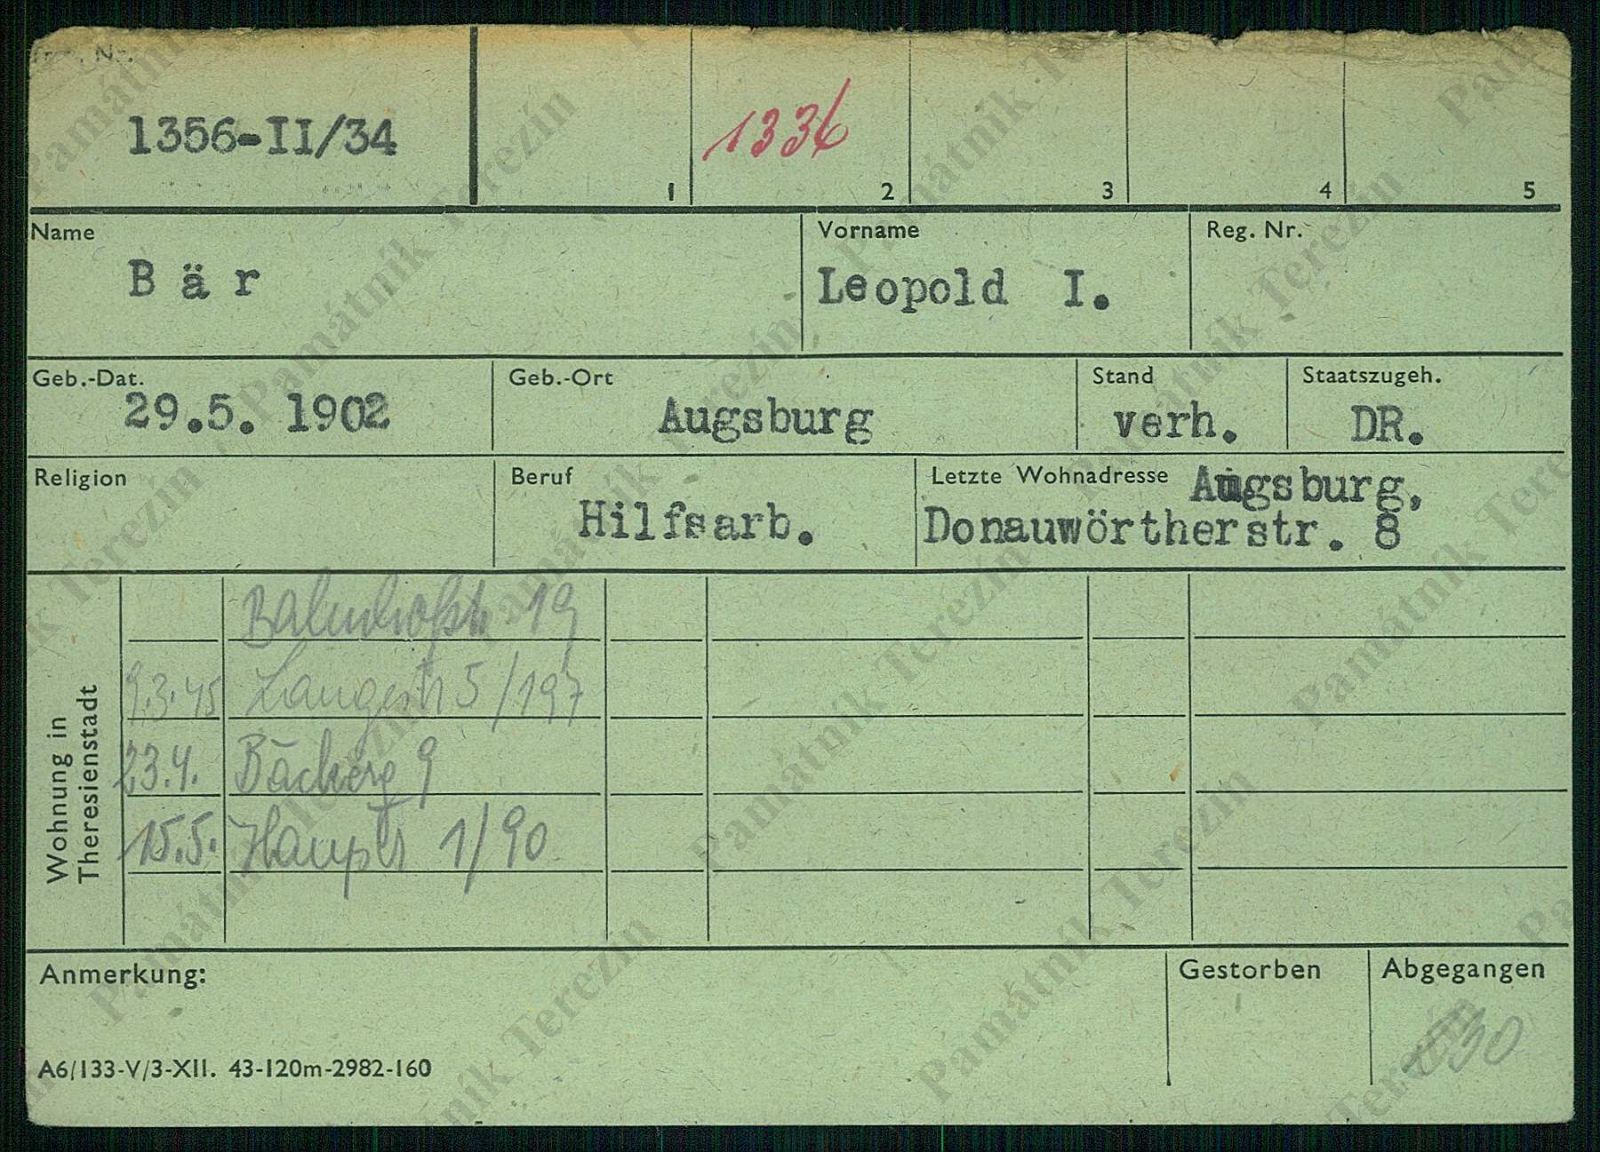 1356-II/34
1336
1 2 3 4 5
Name
Vorname
Reg. Nr.
Bär
Leopold I.
Geb.-Dat.
Geb.-Ort
Stand
Staatszugeh.
29.5. 1902
Augsburg
verh.
DR.
Religion
Beruf
Letzte Wohnadresse Augsburg,
Hilfsarb.
Donauwörtherstr. 8
Wohnung in
Theresienstadt
Bahnhofstr 19
9.3.45 Langestr 5/197
23.4. Bäckerg 9
15.5. Hauptstr 1/90
Anmerkung:
Gestorben
Abgegangen
A6/133-V/3-XII. 43-120m-2982-160
Památník Terezín